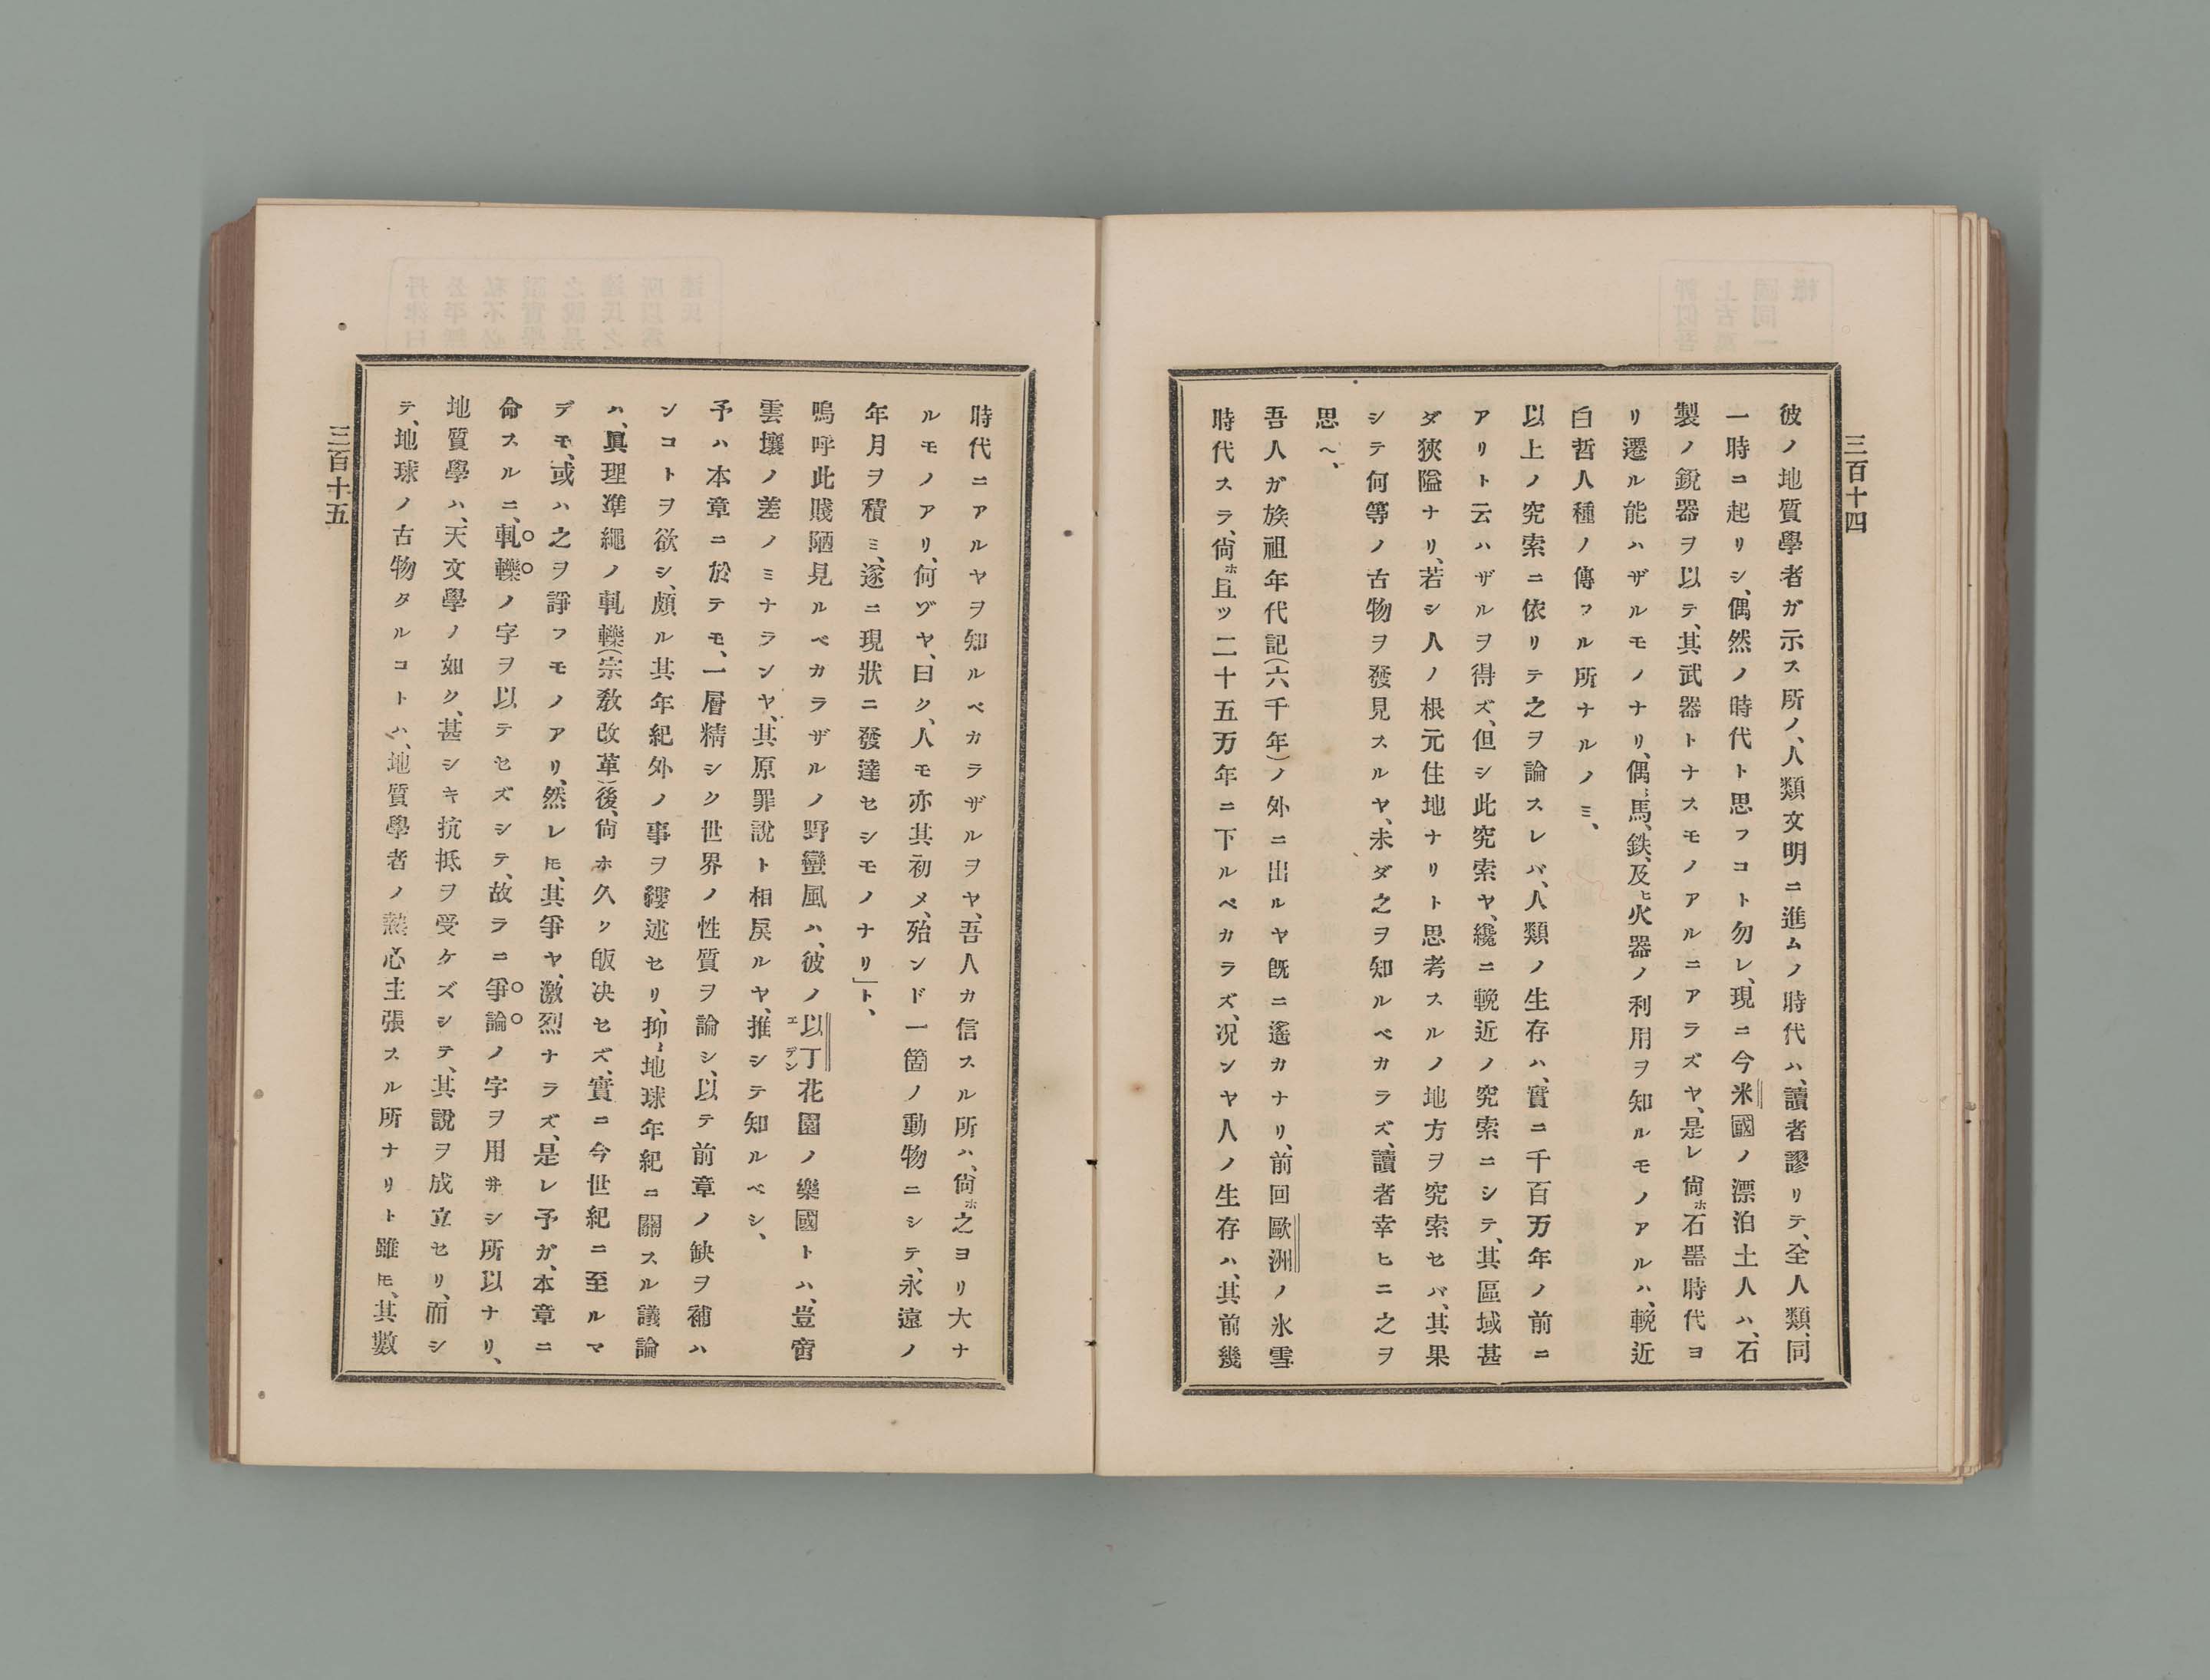 三百十四
彼ノ地質學者ガ示ス所ノ、人類文明ニ進ムノ時代ハ、讀者謬リテ、全人類、同
一時ニ起リシ、偶然ノ時代ト思フコト勿レ、現ニ今米國ノ漂泊土人ハ、石
製ノ銳器ヲ以テ、其武器トナスモノアルニアラズヤ、是レ尙ホ石器時代ヨ
リ遷ル能ハザルモノナリ、偶〻馬、鉄、及ヒ火器ノ利用ヲ知ルモノアルハ、輓近
白晢人種ノ傳フル所ナルノミ、
以上ノ究索ニ依リテ之ヲ論スレバ、人類ノ生存ハ、實ニ千百万年ノ前ニ
アリト云ハザルヲ得ズ、但シ此究索ヤ、纔ニ輓近ノ究索ニシテ、其區域甚
ダ狹隘ナリ、若シ人ノ根元住地ナリト思考スルノ地方ヲ究索セバ、其果
シテ何等ノ古物ヲ發見スルヤ、未ダ之ヲ知ルベカラズ、讀者幸ヒニ之ヲ
思ヘ、
吾人ガ族祖年代記(六千年)ノ外ニ出ルヤ既ニ遙カナリ、前回歐洲ノ氷雪
時代スラ、尙ホ且ツ二十五万年ニ下ルベカラズ、況ンヤ人ノ生存ハ、其前幾
時代ニアルヤヲ知ルベカラザルヲヤ、吾人カ信スル所ハ、尙ホ之ヨリ大ナ
ルモノアリ、何ゾヤ、曰ク、人モ亦其初メ、殆ンド一箇ノ動物ニシテ、永遠ノ
年月ヲ積ミ、遂ニ現狀ニ發達セシモノナリ」ト、
嗚呼此賤陋見ルベカラザルノ野蠻風ハ、彼ノ以丁エデン花園ノ樂國トハ、豈啻
雲壤ノ差ノミナランヤ、其原罪說ト相戾ルヤ、推シテ知ルベシ、
予ハ本章ニ於テモ、一層精シク世界ノ性質ヲ論シ、以テ前章ノ缺ヲ補ハ
ンコトヲ欲シ、頗ル其年紀外ノ事ヲ縷述セリ、抑〻地球年紀ニ關スル議論
ハ、眞理準繩ノ軋轢(宗敎改革)後、尙ホ久ク皈决セズ、實ニ今世紀ニ至ルマ
デモ、或ハ之ヲ諍フモノアリ、然レ𪜈、其爭ヤ、激烈ナラズ、是レ予ガ、本章ニ
命スルニ、軋轢ノ字ヲ以テセズシテ、故ラニ爭論ノ字ヲ用井シ所以ナリ、
地質學ハ、天文學ノ如ク、甚シキ抗抵ヲ受ケズシテ、其說ヲ成立セリ、而シ
テ、地球ノ古物タルコトハ、地質學者ノ熱心主張スル所ナリト雖𪜈、其數
三百十五